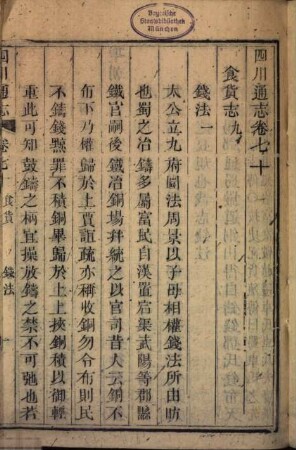 Bayerische
Staatsbibliothek
München
四川通志卷七十
食貨志九
錢法一
太公立九府圜法周景以子母相權錢法所由昉
也蜀之冶鑄多屬富民自漢置宕渠武陽等郡縣
鐵官嗣後鐵冶銅場拜統之以官司昔人云銅不
布下乃權歸於上賈誼疏亦稱收銅勿令布則民
不鑄錢黥罪不積銅畢歸於上上挾銅積以御輕
重此可知鼓鑄之柄宜操放鑄之禁不可弛也若
四川通志
卷七十
食貨
錢法